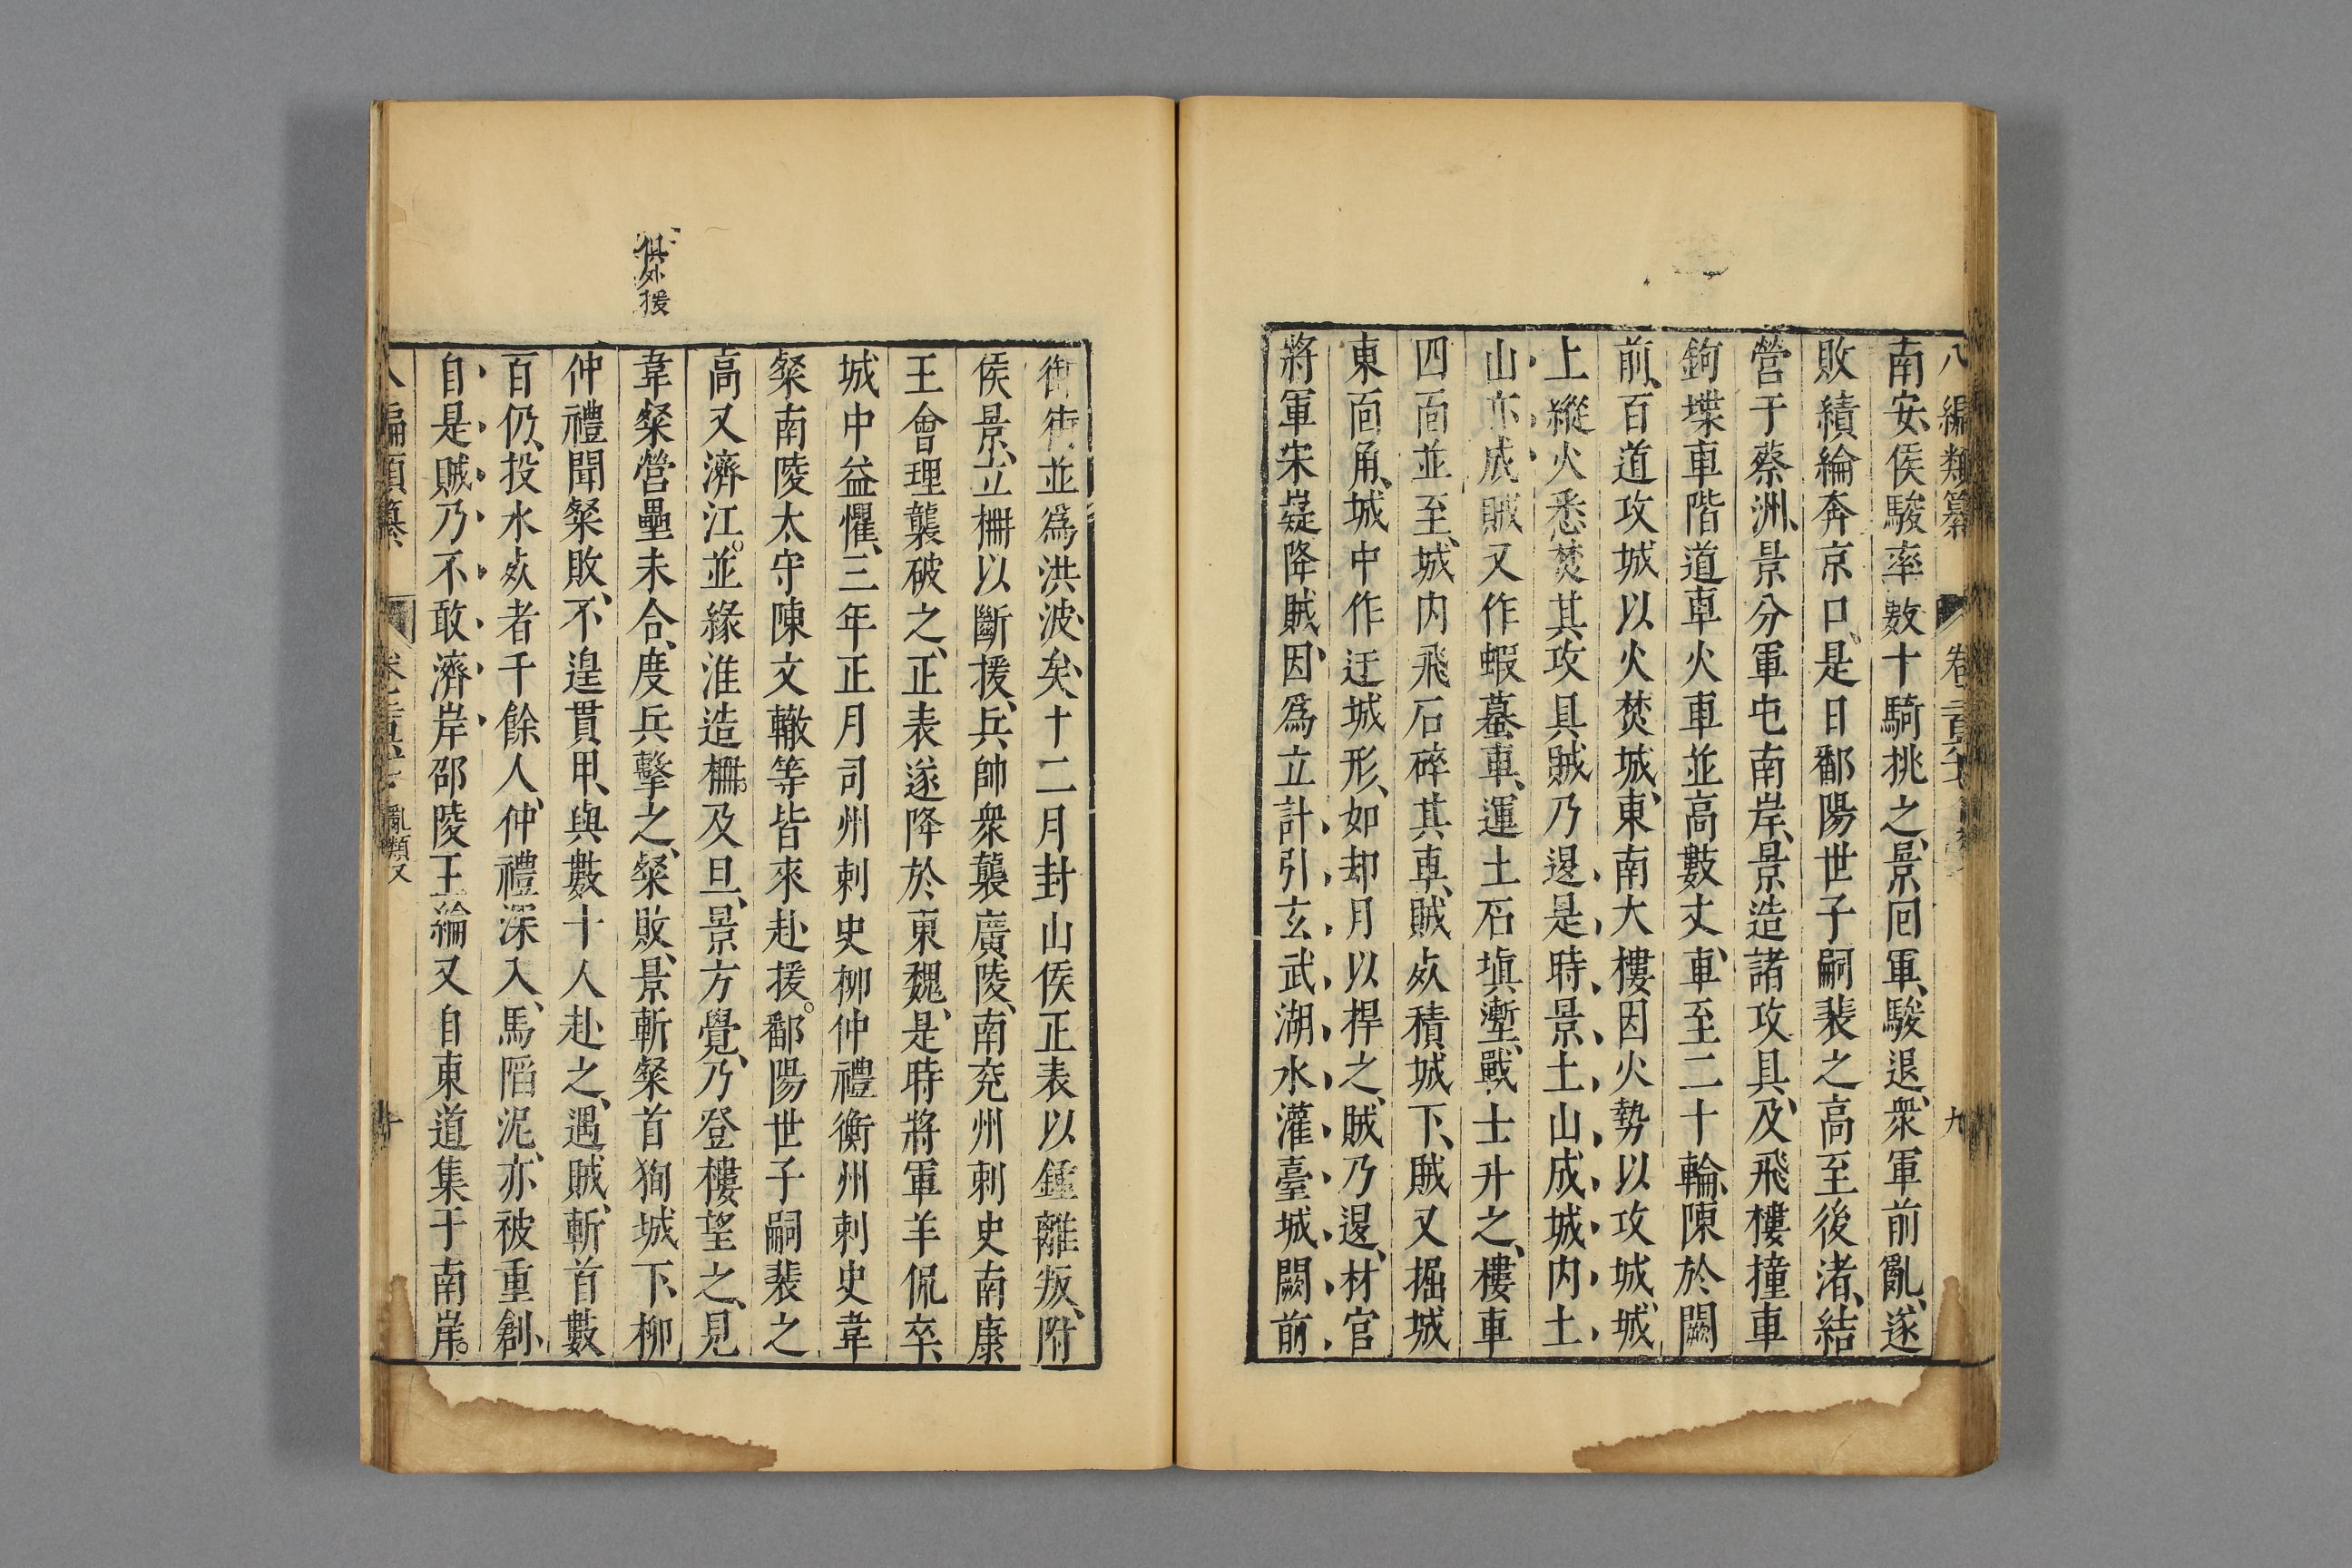 八編類纂　卷二百六十　九
南安侯駿率數十騎挑之、景囘軍、駿退、衆軍前亂、遂
敗績綸奔京口。是日鄱陽世子嗣裴之高至後渚、結
營于蔡洲、景分軍屯南岸、景造諸攻具、及飛樓撞車
鉤堞車階道車火車並高數丈、車至二十輪、陳於闕
前、百道攻城以火焚城、東南大樓因火勢以攻城、城
上縱火悉焚其攻具賊乃退是時景土山成城内土
山亦成賊又作蝦蟇車、運土石塡塹、戰士升之、樓車
四面並至、城内飛石碎其車、賊死積城下、賊又掘城
東面角、城中作迂城形、如却月以捍之、賊乃退、材官
將軍宋嶷降賊、因爲立計引玄武湖水灌臺城闕前
御街並爲洪波矣、十二月封山侯正表以鍾離叛、附
侯景、立栅以斷援、兵帥衆襲廣陵、南兖州刺史南康
王會理襲破之、正表遂降於東魏、是時將軍羊侃卒、
城中益懼、三年正月司州刺史柳仲禮衡州刺史韋
粲南陵太守陳文轍等皆來赴援。鄱陽世子嗣裴之
高又濟江。並緣淮造栅。及旦、景方覺、乃登樓望之、見
韋粲營壘未合、度兵擊之、粲敗、景斬粲首狥城下、柳
仲禮聞粲敗、不遑貫甲、與數十人赴之、遇賊、斬首數
百仍、投水死者千餘人、仲禮深入、馬陷泥、亦被重創、
自是賊乃不敢濟岸邵陵王綸又自東道集于南岸。
編類纂　亂類又　十
俱外援